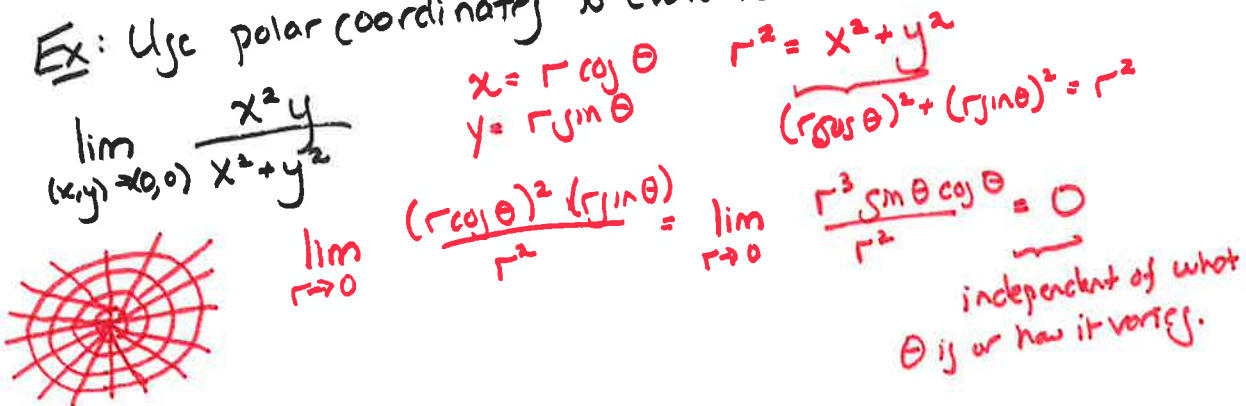 Ex: Use polar coordinates to
lim (x,y)→(0,0) x²y / x²+y²
x = r cos θ
y = r sin θ
r² = x² + y²
(r cos θ)² + (r sin θ)² = r²
lim r→0 (r cos θ)² (r sin θ) / r² = lim r→0 r³ sin θ cos θ / r² = 0
independent of what
θ is or how it varies.